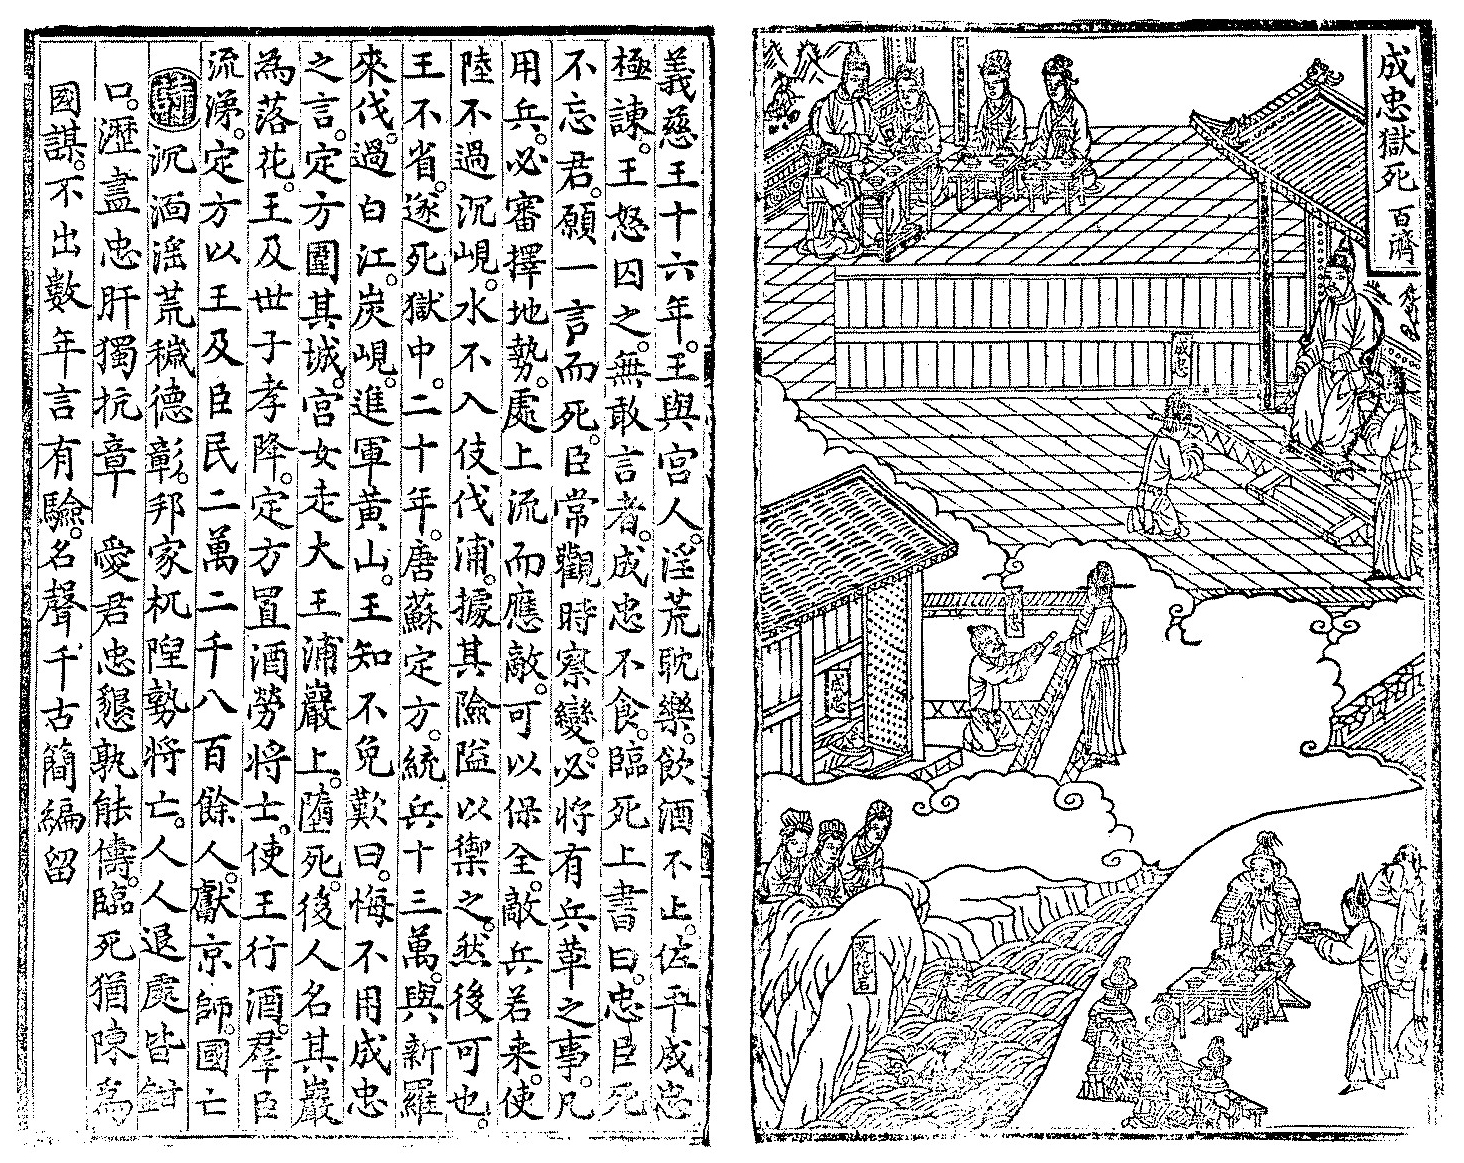 成忠獄死 百濟
成忠
成忠
義慈王十六年。王與宮人。淫荒耽樂。飲酒不止。佐平成忠
極諫。王怒囚之。無敢言者。成忠不食。臨死上書曰。忠臣死
不忘君。願一言而死。臣常觀時察變。必將有兵革之事。凡
用兵。必審擇地勢。處上流而應敵。可以保全。敵兵若来。使
陸不過沉峴。水不入伎伐浦。據其險隘以禦之。然後可也。
王不省。遂死獄中。二十年。唐蘇定方。統兵十三萬。與新羅
來伐。過白江。炭峴。進軍黃山。王知不免歎曰。悔不用成忠
之言。定方圍其城。宮女走大王浦巖上。墮死。後人名其巖
為落花。王及世子孝降。定方置酒勞將士。使王行酒。羣臣
流涕。定方以王及臣民二萬二千八百餘人。獻京師。國亡
沉湎淫荒穢德彰。邦家杌隉勢將亡。人人退處皆鉗
口。瀝盡忠肝獨抗章 愛君忠懇孰能儔。臨死猶陳爲
國謀。不出數年言有驗。名聲千古簡編留